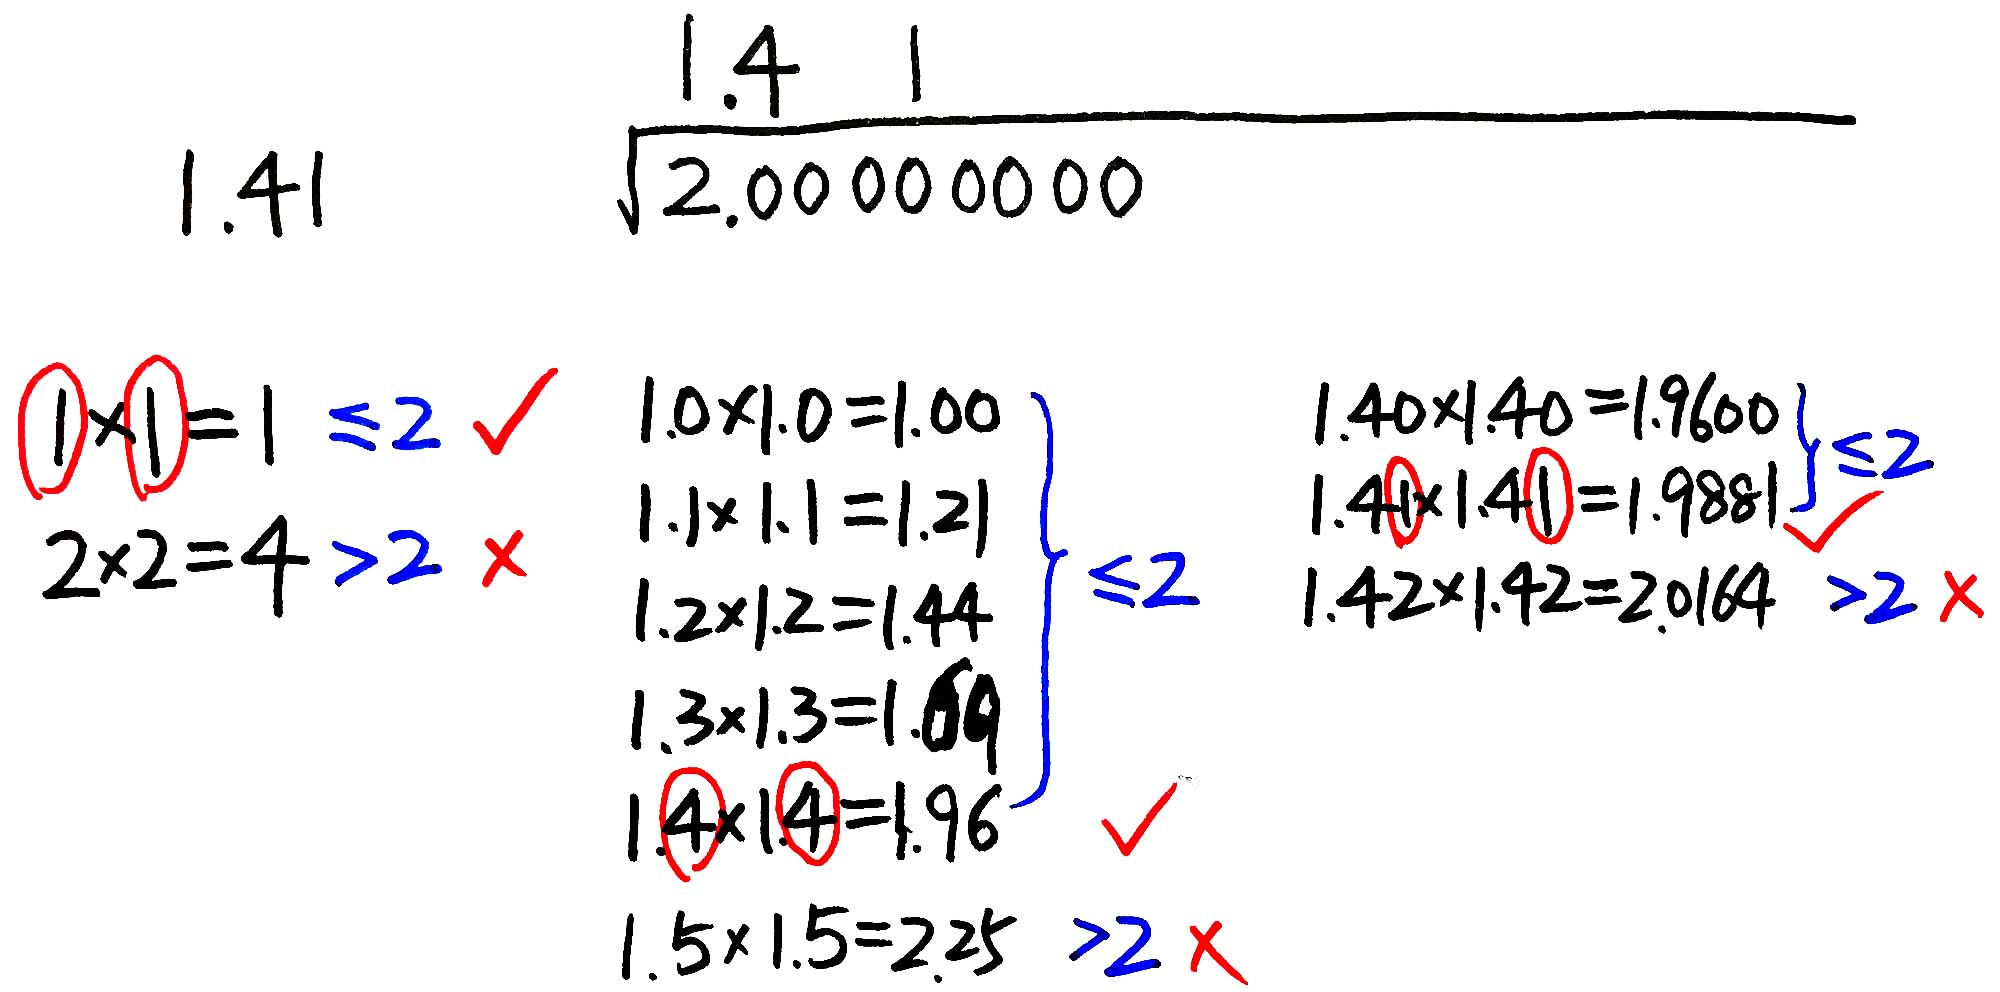 1.4 1
1.41
√2.00000000
1×1=1 ≤2 ✓
2×2=4 >2 ×
1.0×1.0=1.00
1.1×1.1=1.21
1.2×1.2=1.44
1.3×1.3=1.69
1.4×1.4=1.96
≤2 ✓
1.5×1.5=2.25 >2 ×
1.40×1.40=1.9600
1.41×1.41=1.9881
≤2 ✓
1.42×1.42=2.0164 >2 ×